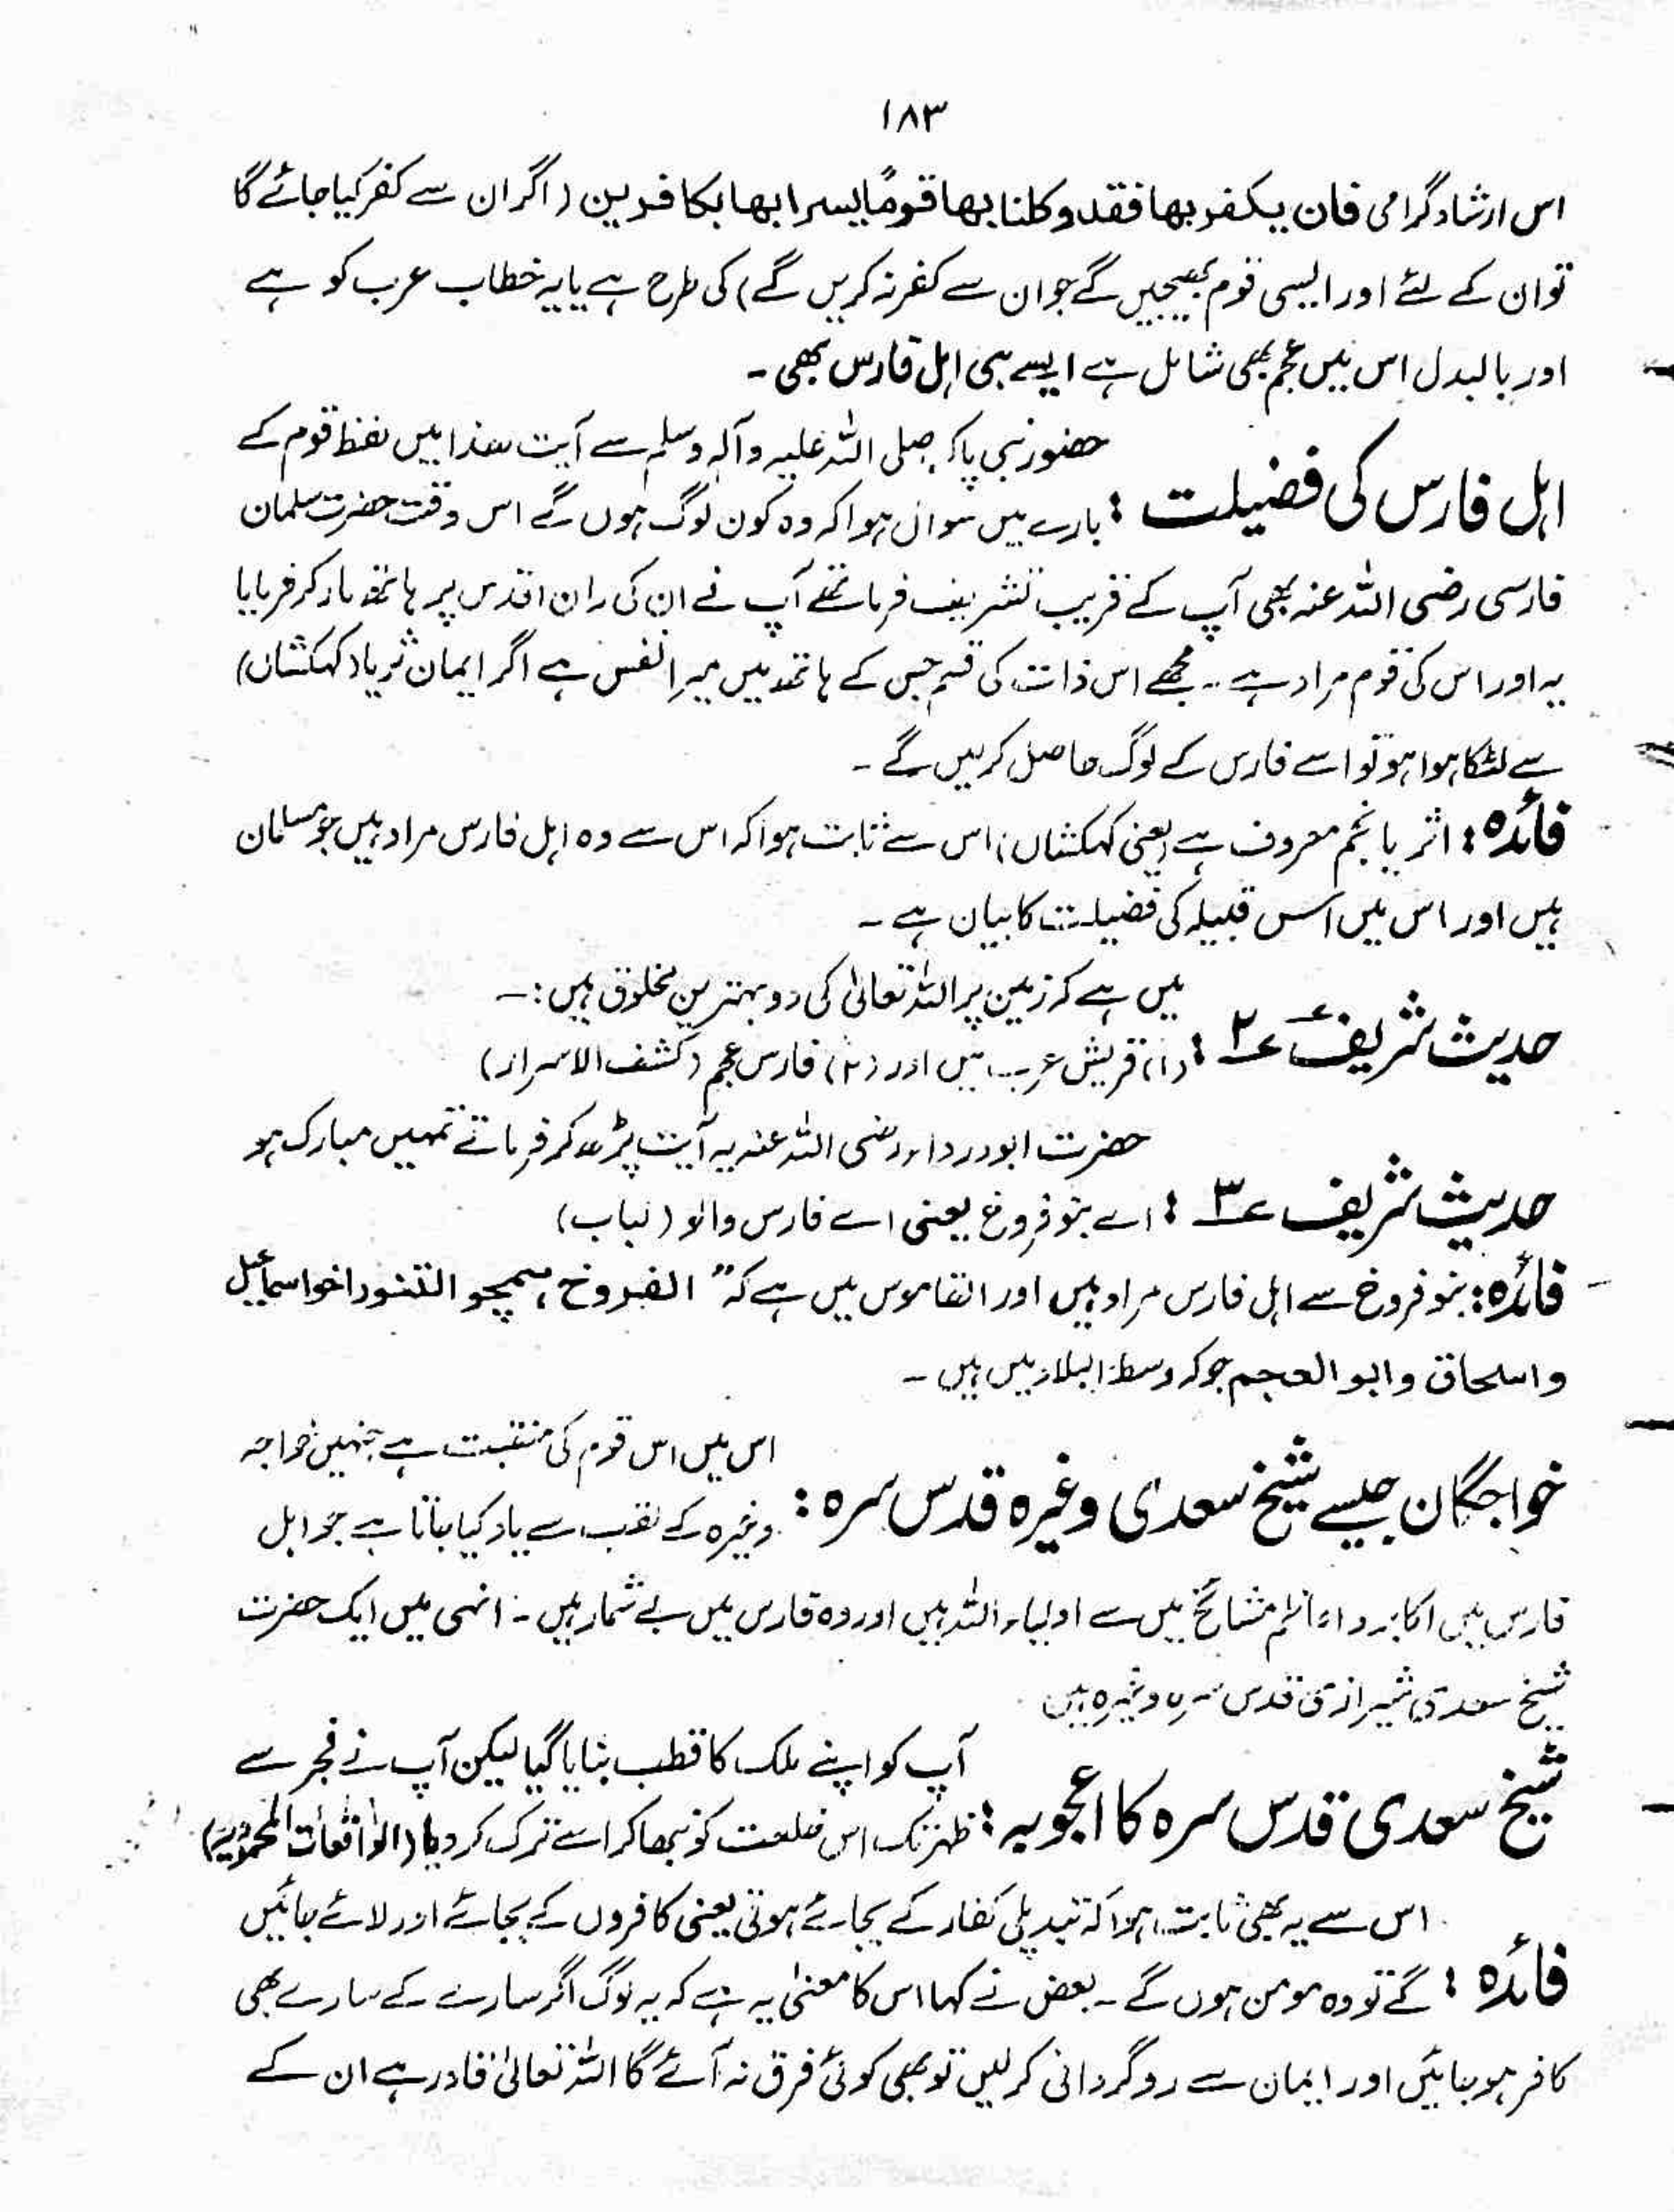 ۱۸۳
اس ارشاد گرامی فان یکفر بھا فقد وکلنا بھا قومًا لیسرا بھا بکافرین (اگر ان سے کفر کیا جائے گا
تو ان کے لئے اور ایسی قوم بھیجیں گے جو ان سے کفر نہ کریں گے) کی طرح ہے یا یہ خطاب عرب کو ہے
اور بالبدل اس میں عجم بھی شامل ہے ایسے ہی اہل فارس بھی ۔
حضور نبی پاک صلی اللہ علیہ وآلہ وسلم سے آیت ھذا میں لفظ قوم کے
اہل فارس کی فضیلت : بارے میں سوال ہوا کہ وہ کون لوگ ہوں گے اس وقت حضرت سلمان
فارسی رضی اللہ عنہ بھی آپ کے قریب تشریف فرما تھے آپ نے ان کی ران اقدس پر ہاتھ مار کر فرمایا
یہ اور اس کی قوم مراد ہے ۔۔ مجھے اس ذات کی قسم جس کے ہاتھ میں میرا نفس ہے اگر ایمان ثریا (کہکشاں)
سے لٹکا ہوا ہو تو اسے فارس کے لوگ حاصل کریں گے ۔
فائدہ : اثر یا نجم معروف ہے (یعنی کہکشاں) اس سے ثابت ہوا کہ اس سے وہ اہل فارس مراد ہیں جو مسلمان
ہیں اور اس میں اس قبیلہ کی فضیلت کا بیان ہے ۔
میں ہے کہ زمین پر اللہ تعالیٰ کی دو بہترین مخلوق ہیں :۔
حدیث شریف ۲ : (۱) قریش عرب میں اور (۲) فارس عجم (کشف الاسرار)
حضرت ابودرداء رضی اللہ عنہ یہ آیت پڑھ کر فرماتے تمہیں مبارک ہو
حدیث شریف ۳ : اے بنو فروخ یعنی اے فارس والو (لباب)
فائدہ : بنو فروخ سے اہل فارس مراد ہیں اور القاموس میں ہے کہ ” الفروخ ہمچو التنور اخو اسماعیل
و اسحاق و ابو العجم جو کہ وسط البلاد میں ہیں ۔
اس میں اس قوم کی منقبت ہے جنہیں خواجہ
خواجگان جیسے شیخ سعدی وغیرہ قدس سرہ : وغیرہ کے لقب سے یاد کیا جاتا ہے جو اہل
فارس میں اکابر و اعاظم مشائخ میں سے اولیاء اللہ ہیں اور وہ فارس میں بے شمار ہیں ۔ انہی میں ایک حضرت
شیخ سعدی شیرازی قدس سرہ وغیرہ ہیں
آپ کو اپنے ملک کا قطب بنایا گیا لیکن آپ نے فجر سے
شیخ سعدی قدس سرہ کا اعجوبہ : ظہر تک اس خلعت کو نبھا کر اسے ترک کر دیا (الواقعات المحمودیہ)
اس سے یہ بھی ثابت ہوا کہ تبدیلی کفار کے بجائے ہوتی یعنی کافروں کے بجائے اور لائے جائیں
فائدہ : گے تو وہ مومن ہوں گے ۔ بعض نے کہا اس کا معنیٰ یہ ہے کہ یہ لوگ اگر سارے کے سارے بھی
کافر ہو جائیں اور ایمان سے روگردانی کر لیں تو بھی کوئی فرق نہ آئے گا اللہ تعالیٰ قادر ہے ان کے